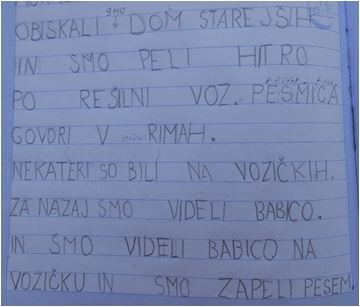 SMO
OBISKALI DOM STAREJŠIH
IN SMO PELI HITRO
PO REŠILNI VOZ. PESMICA
GOVORI V RIMAH.
NEKATERI SO BILI NA VOZIČKIH.
ZA NAZAJ SMO VIDELI BABICO.
IN SMO VIDELI BABICO NA
VOZIČKU IN SMO ZAPELI PESEM.